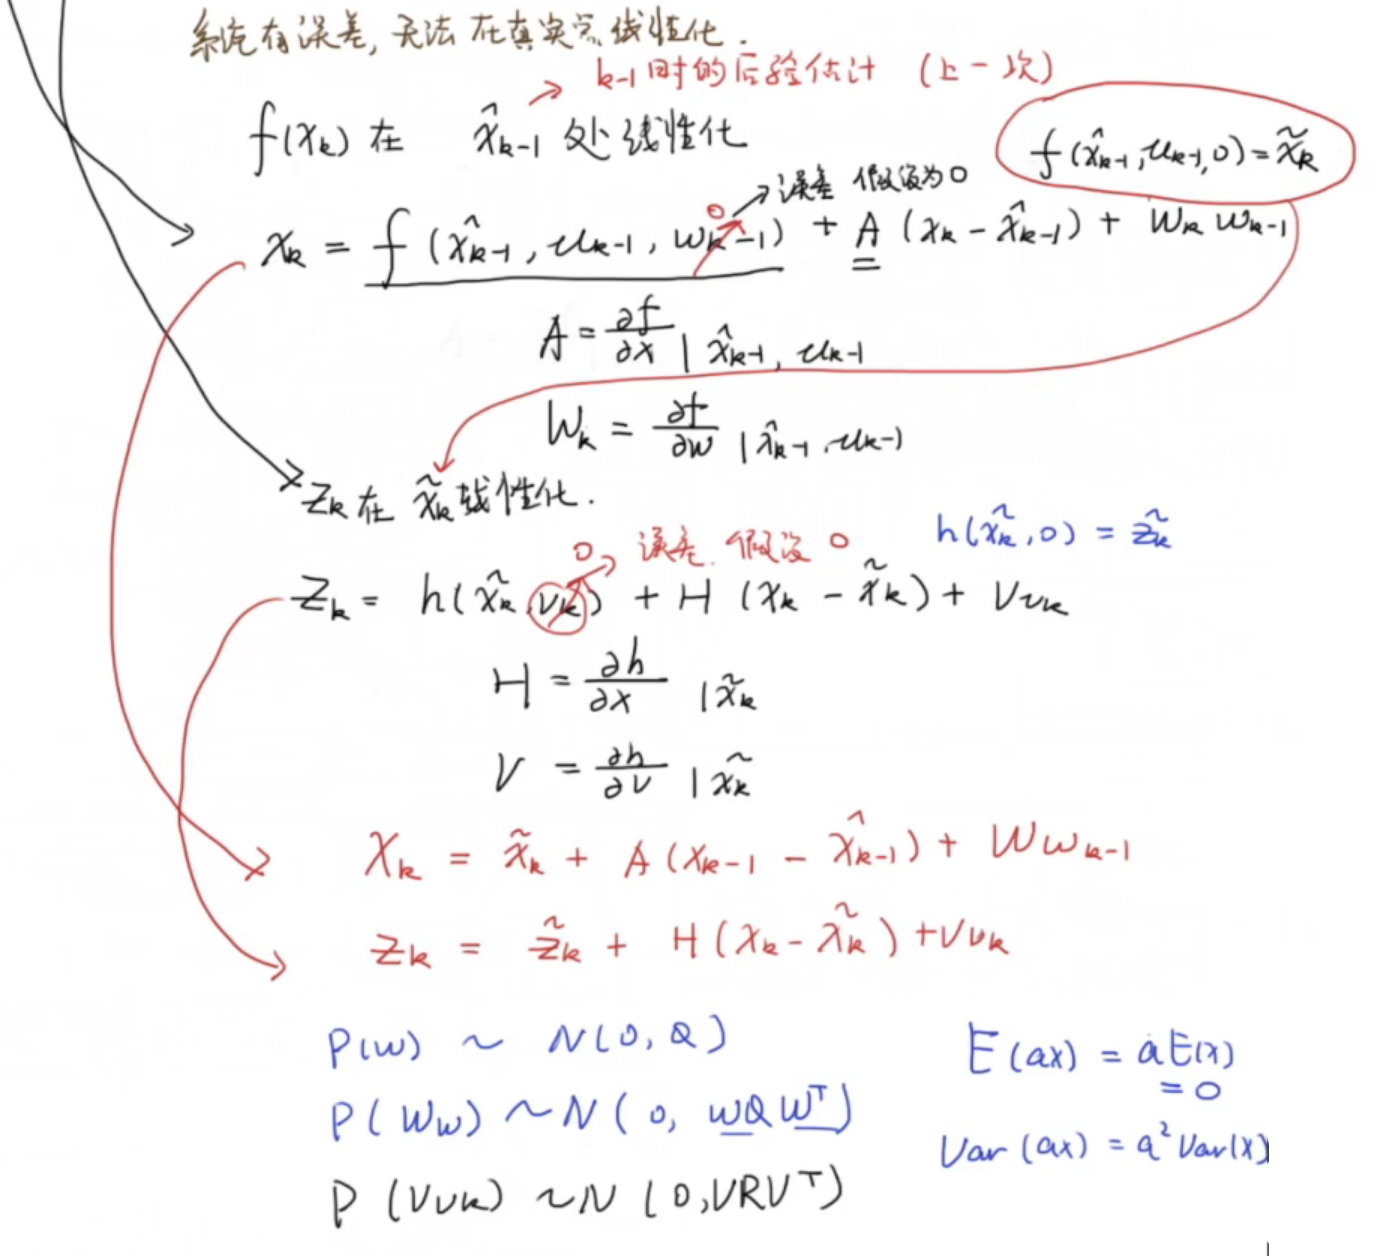 系统有误差,无法在真实点线性化.
k-1时的后验估计 (上一次)
f(x_k) 在 x̂_{k-1} 处线性化
f(x̂_{k-1}, u_{k-1}, 0) = x̃_k
0 误差 假设为0
x_k = f(x̂_{k-1}, u_{k-1}, w_{k-1}) + A(x_k - x̂_{k-1}) + W_k w_{k-1}
A = ∂f/∂x | x̂_{k-1}, u_{k-1}
W_k = ∂f/∂w | x̂_{k-1}, u_{k-1}
z_k 在 x̃_k 线性化.
h(x̃_k, 0) = z̃_k
0 误差 假设 0
z_k = h(x̃_k, v_k) + H(x_k - x̃_k) + V v_k
H = ∂h/∂x | x̃_k
V = ∂h/∂v | x̃_k
x_k = x̃_k + A(x_{k-1} - x̂_{k-1}) + W w_{k-1}
z_k = z̃_k + H(x_k - x̃_k) + V v_k
P(w) ~ N(0, Q)
E(ax) = aE(x)
= 0
P(Ww) ~ N(0, WQW^T)
Var(ax) = a² Var(x)
P(Vv_k) ~ N(0, VRV^T)